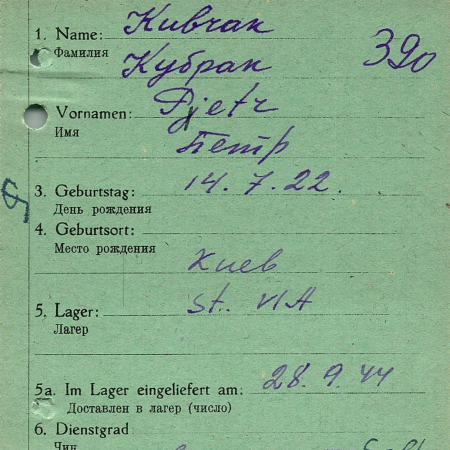 1. Name: Кивчак
Фамилия
Кубрак
390
Vornamen: Pjetr
Имя
Петр
3. Geburtstag: 14. 7. 22.
День рождения
4. Geburtsort:
Место рождения
Киев
5. Lager: St. VIA
Лагерь
5a. Im Lager eingeliefert am: 28. 9. 44
Доставлен в лагер (число)
6. Dienstgrad
Чин